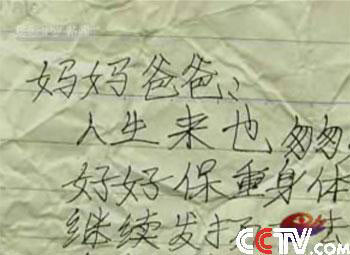 妈妈爸爸:
人生来也匆匆,
好好保重身体
继续发扬
CCTV.com